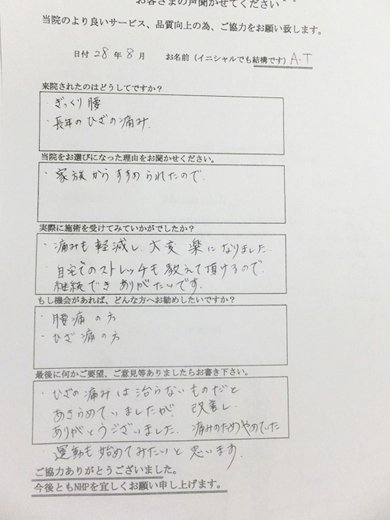 お客さまの声聞かせてください
当院のより良いサービス、品質向上の為、ご協力をお願い致します。
日付 28 年 8 月 お名前（イニシャルでも結構です）A.T
来院されたのはどうしてですか？
・ぎっくり腰
・長年のひざの痛み.
当院をお選びになった理由をお聞かせください。
・家族からすすめられたので.
実際に施術を受けてみていかがでしたか？
・痛みも軽減し、大変楽になりました
・自宅でのストレッチも教えて頂けるので.
継続でき ありがたいです.
もし機会があれば、どんな方へお勧めしたいですか？
・腰痛の方
・ひざ痛の方
最後に何かご要望、ご意見等ありましたらお書き下さい。
・ひざの痛みは治らないものだと
あきらめていましたが 改善し
ありがとうございました. 痛みのためやめていた
運動も始めてみたいと思います.
ご協力ありがとうございました。
今後ともNHPを宜しくお願い申し上げます。